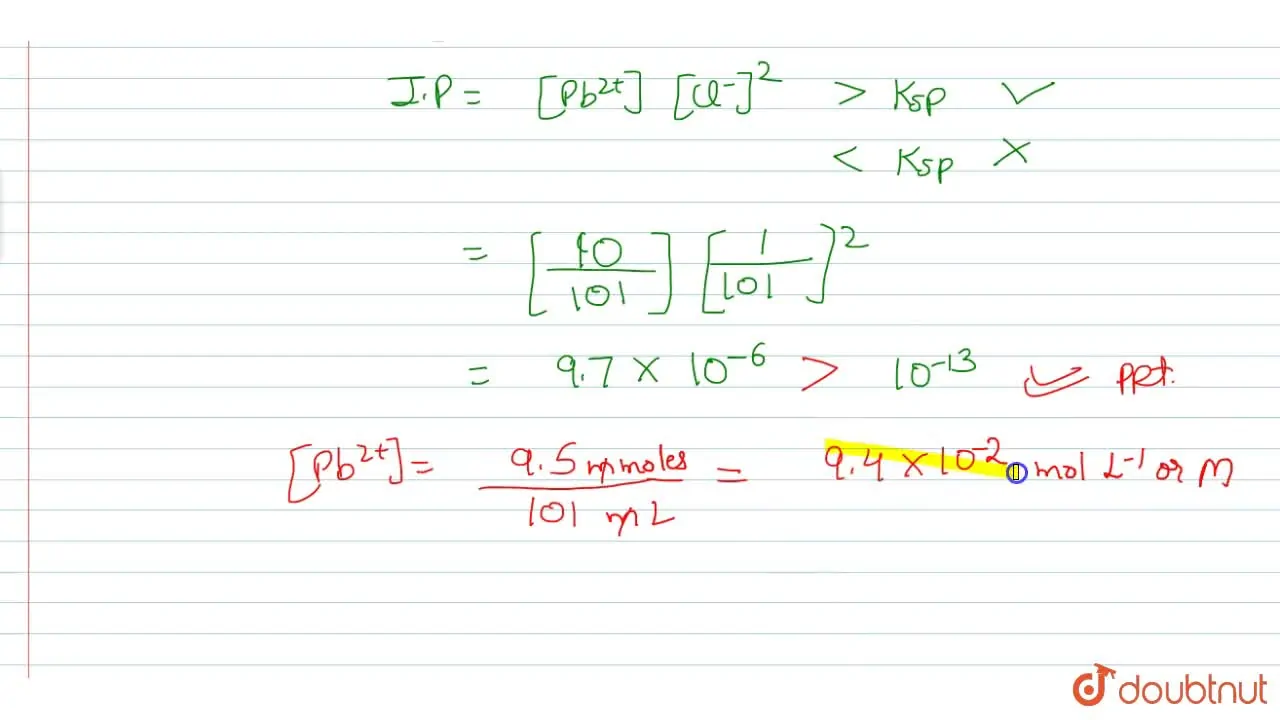 I.P = [Pb²⁺] [Cl⁻]² > Ksp ✓
< Ksp ✗
= [10/101] [1/101]²
= 9.7 × 10⁻⁶ > 10⁻¹³ ✓ ppt.
[Pb²⁺] = 9.5 mmoles/101 mL = 9.4 × 10⁻² mol L⁻¹ or M
doubtnut